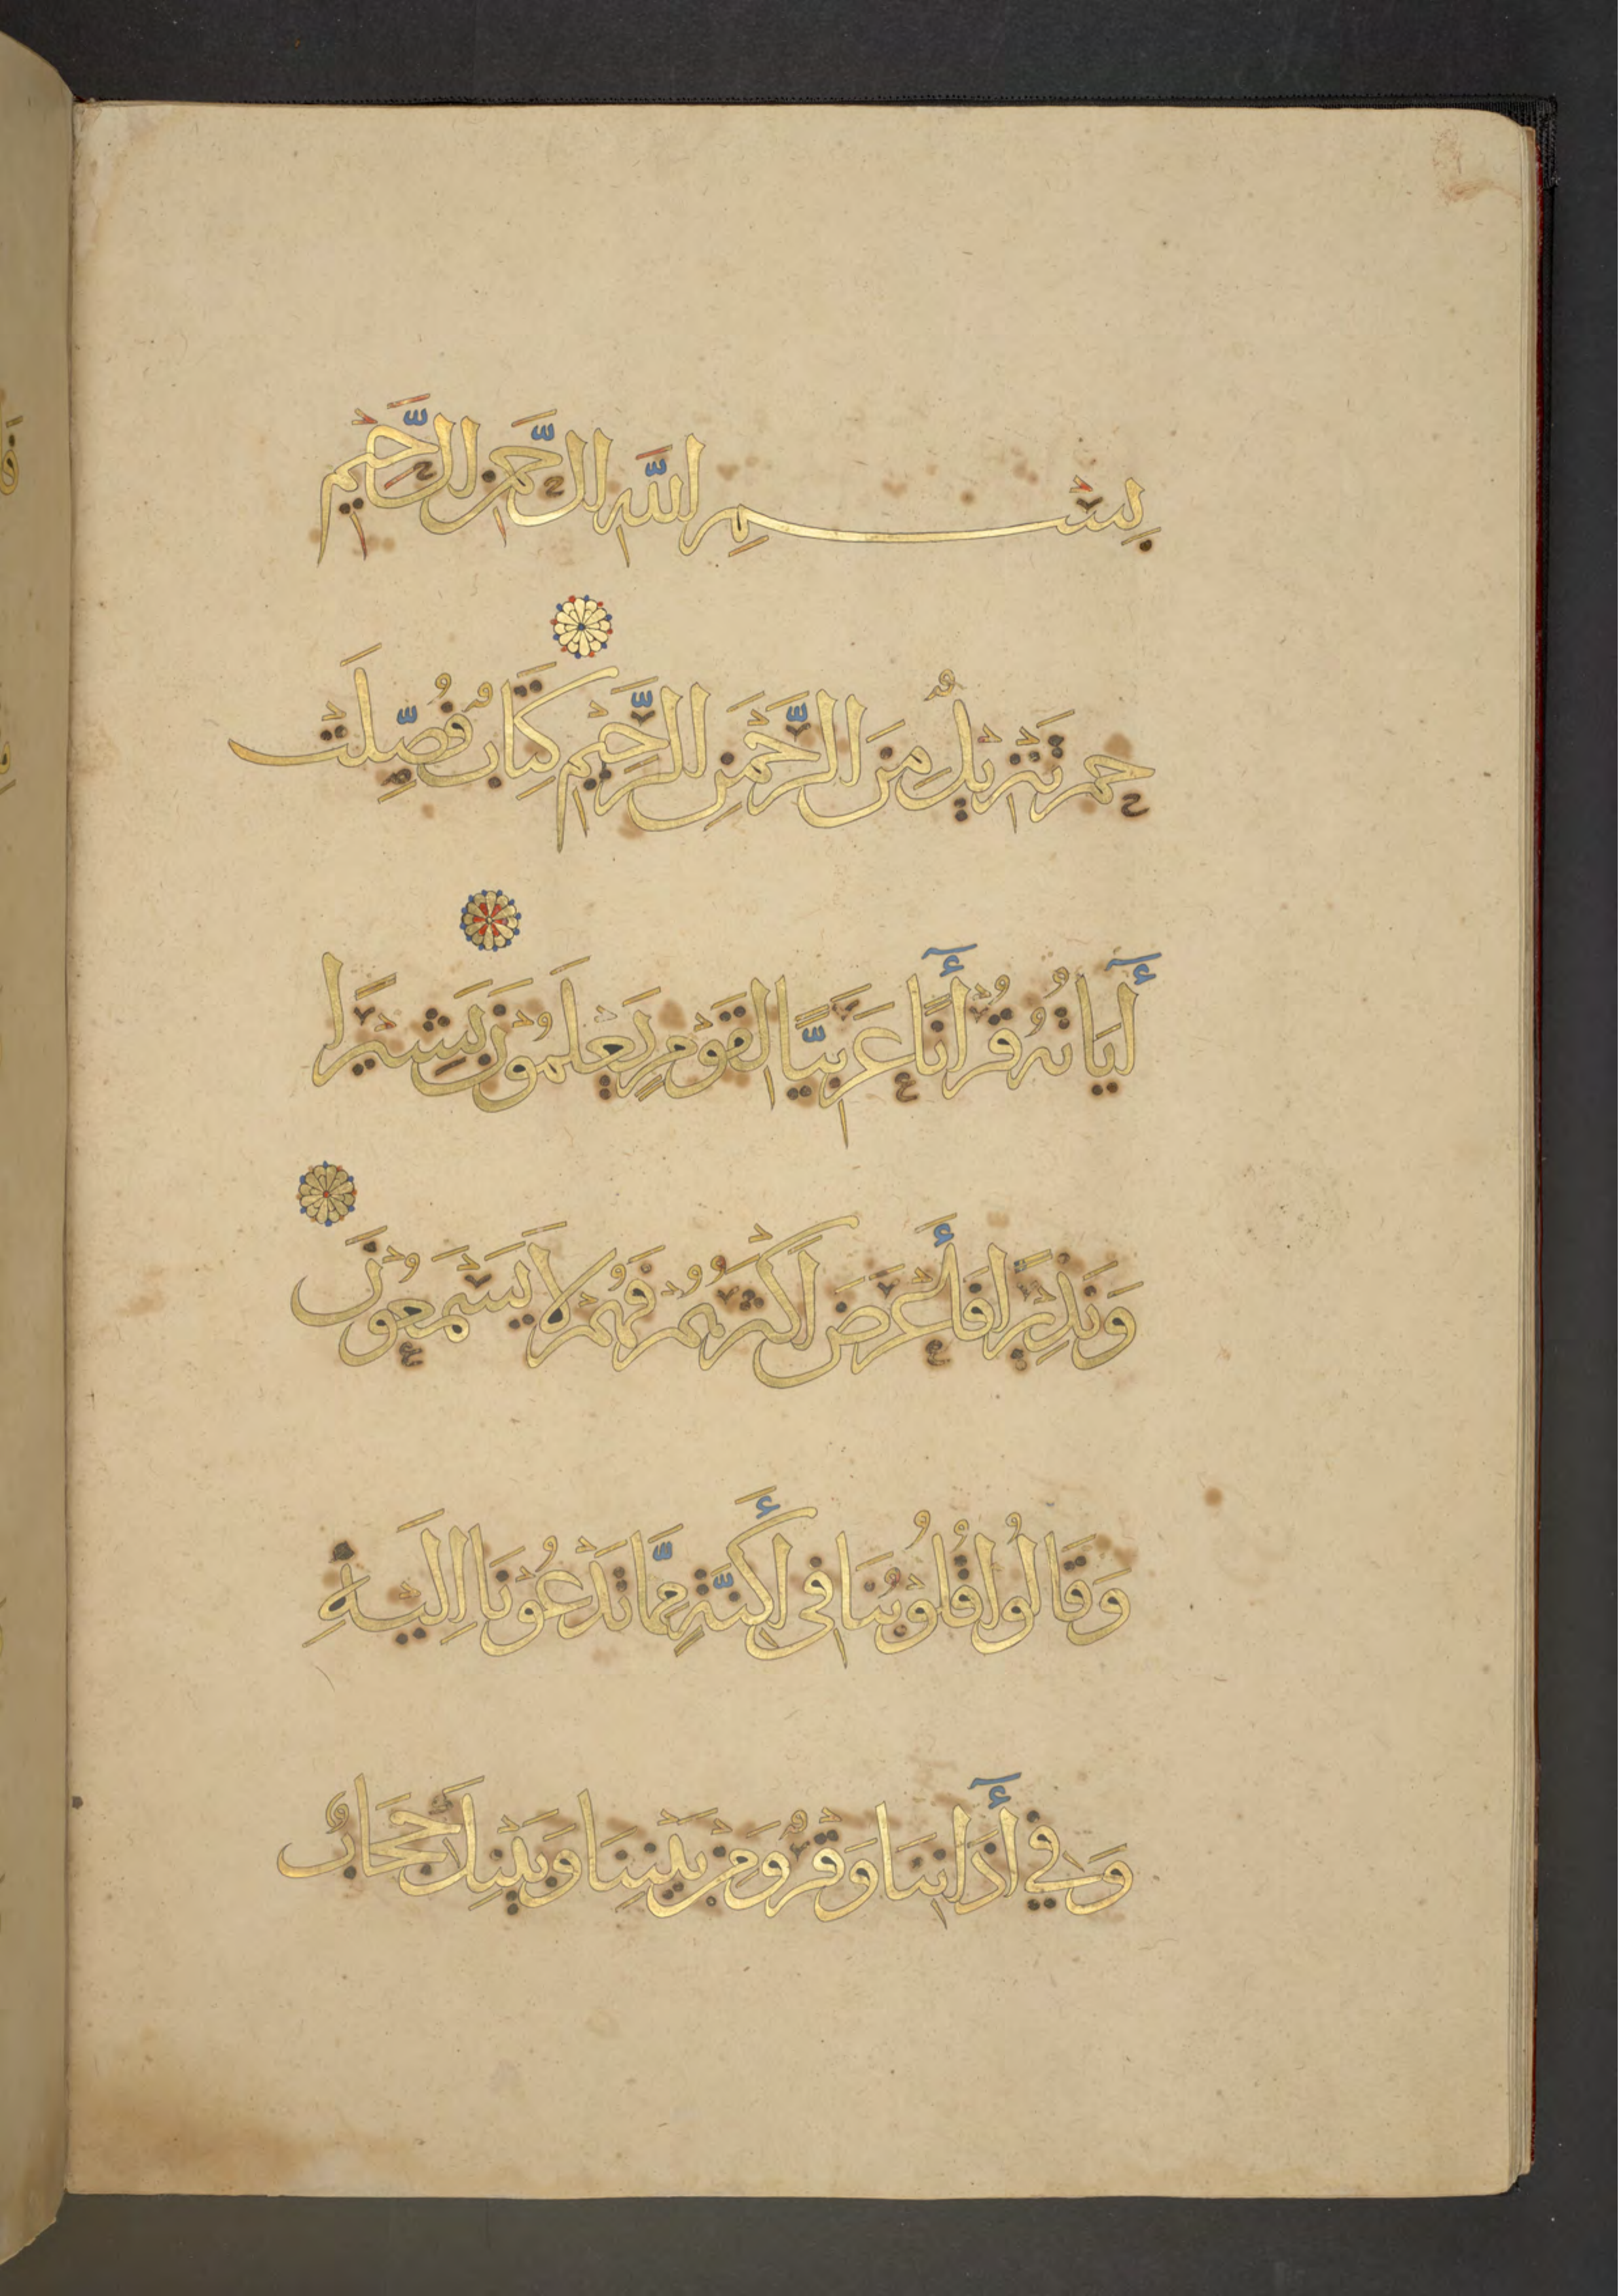 بِسْمِ اللَّهِ الرَّحْمَنِ الرَّحِيْمِ
حم تَنْزِيْلٌ مِنَ الرَّحْمَنِ الرَّحِيْمِ كِتَابٌ فُصِّلَتْ
أٓيَاتُهُ قُرْأٓنًا عَرَبِيًّا لِقَوْمٍ يَعْلَمُوْنَ بَشِيْرًا
وَنَذِيْرًا فَأَعْرَضَ أَكْثَرُهُمْ فَهُمْ لَا يَسْمَعُوْنَ
وَقَالُوا قُلُوْبُنَا فِي أَكِنَّةٍ مِمَّا تَدْعُوْنَا إِلَيْهِ
وَفِي أٓذَانِنَا وَقْرٌ وَمِنْ بَيْنِنَا وَبَيْنِكَ حِجَابٌ